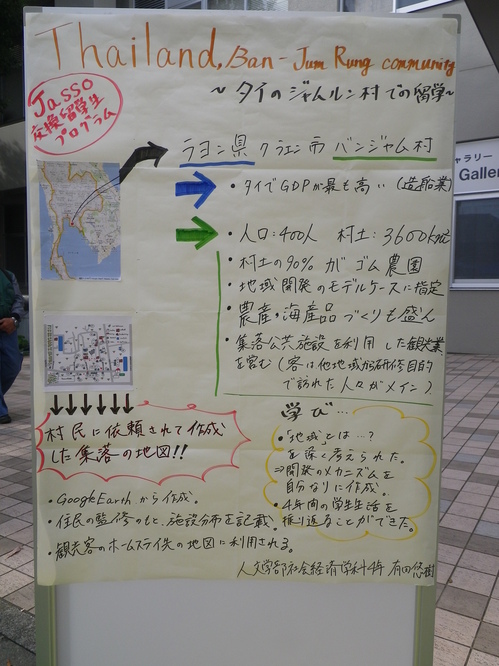 Thailand, Ban-Jum Rung community
～タイのジャムルン村での留学～
JASSO
交換留学生
プログラム
ラヨン県 クラエン市 バンジャム村
・タイでGDPが最も高い(造船業)
・人口:400人 村土:3600km²
・村土の90%がゴム農園
・地域開発のモデルケースに指定
・農産・海産品づくりも盛ん
・集落公共施設を利用した観光業
を営む(客は他地域から研修目的
で訪れた人々がメイン)
村民に依頼されて作成
した集落の地図!!
・Google Earthから作成。
・住民の監修のもと、施設分布を記載。
・観光客のホームステイ先の地図に利用される。
学び…
・「地域」とは…?
を深く考えられた。
⇒開発のメカニズムを
自分なりに作成。
・4年間の学生生活を
振り返ることができた。
人文学部社会経済学科4年 有田悠樹
ギャラリー
Galler